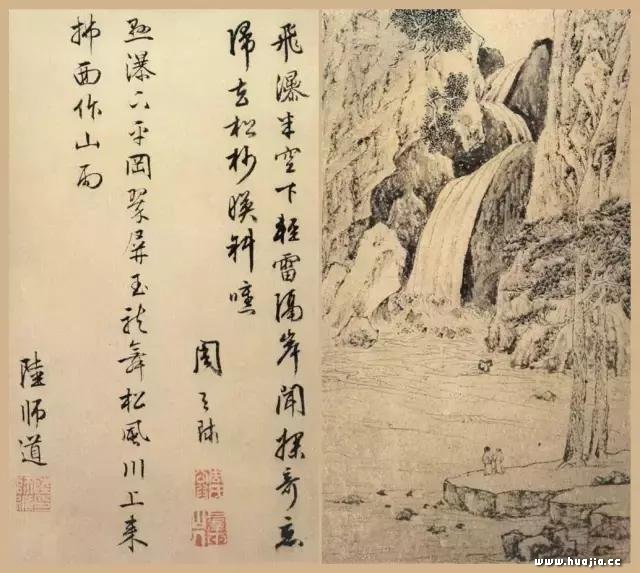 飛瀑半空下輕雷隔岸聞探奇忘
歸去松杪暎斜曛
周天球
懸瀑下平岡翠屏玉龍舞松風川上来
拂面作山雨
陸師道
www.huajia.cc